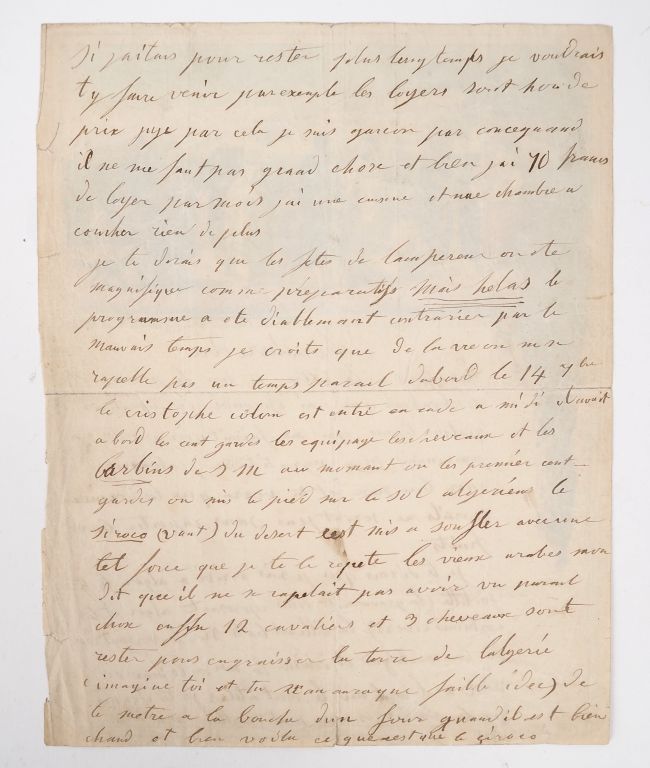 si jaitais pour rester plus lengtemps je voudrais
ty faire venir par exemple les loyers sont hors de
prix juje par cela je suis garcon par concequand
il ne me faut pas grand chose et bien j'ai 70 francs
de loyer par mois j'ai une cusine et une chambre a
coucher rien de plus
je te dirais que les fetes de lampereur on ete
magnifique comme preparatifs mais helas le
programme a ete diablemant contrarier par le
mauvais temps je croits que de la vie on ne se
rapelle pas un temps pareil dabord le 14 7bre
le cristophe colon est entre en rade a midi il avait
a bord les cent gardes les equipage les cheveaux et les
larbins de S M au momant ou les premier cent-
gardes on mis le pied sur le sol algeriens le
siroco (vant) du desert cest mis a soufler avec une
tel force que je te le repete les vieux arabes mon
dit que il ne se rapelait pas avoir vu pareil
chose enfin 12 cavaliers et 3 cheveaux sont
rester pour engraisser la terre de lalgerie
(imagine toi et tu nan aura que faible idee) de
te metre a la bouche dun four quand il est bien
chaud et bien voila ce que cest que le siroco